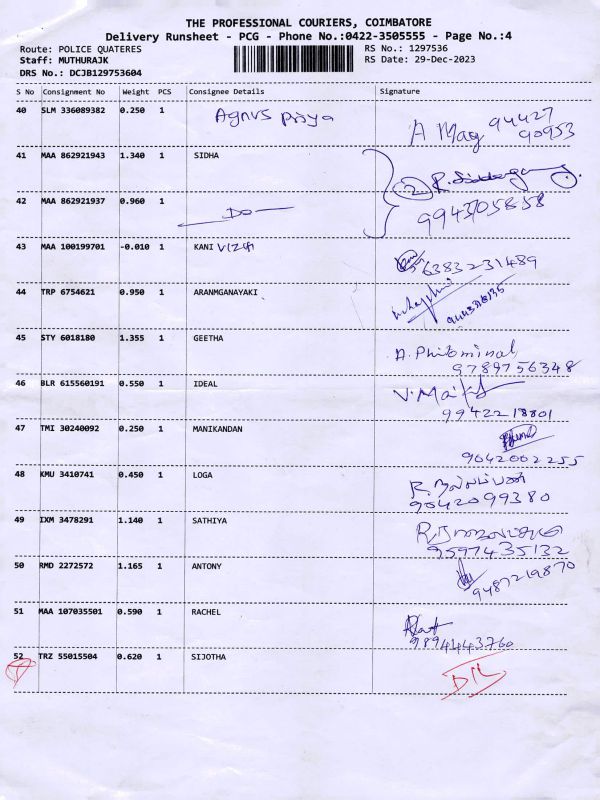 THE PROFESSIONAL COURIERS, COIMBATORE
Delivery Runsheet - PCG - Phone No.:0422-3505555 - Page No.:4
Route: POLICE QUATERES
RS No.: 1297536
Staff: MUTHURAJK
RS Date: 29-Dec-2023
DRS No.: DCJB129753604
S No Consignment No Weight PCS Consignee Details Signature
40 SLM 336089382 0.250 1 Agnus priya A Mag 94427
90953
41 MAA 862921943 1.340 1 SIDHA
2
42 MAA 862921937 0.960 1 Do 9943105858
43 MAA 100199701 -0.010 1 KANI 6383231489
44 TRP 6754621 0.950 1 ARANMGANAYAKI
45 STY 6018180 1.355 1 GEETHA A. Philominal
9789756348
46 BLR 615560191 0.550 1 IDEAL
9942218801
47 TMI 30240092 0.250 1 MANIKANDAN
9042002255
48 KMU 3410741 0.450 1 LOGA
9042099380
49 IXM 3478291 1.140 1 SATHIYA
9597435132
50 RMD 2272572 1.165 1 ANTONY
9487219870
51 MAA 107035501 0.590 1 RACHEL
9894443760
52 TRZ 55015504 0.620 1 SIJOTHA D/L